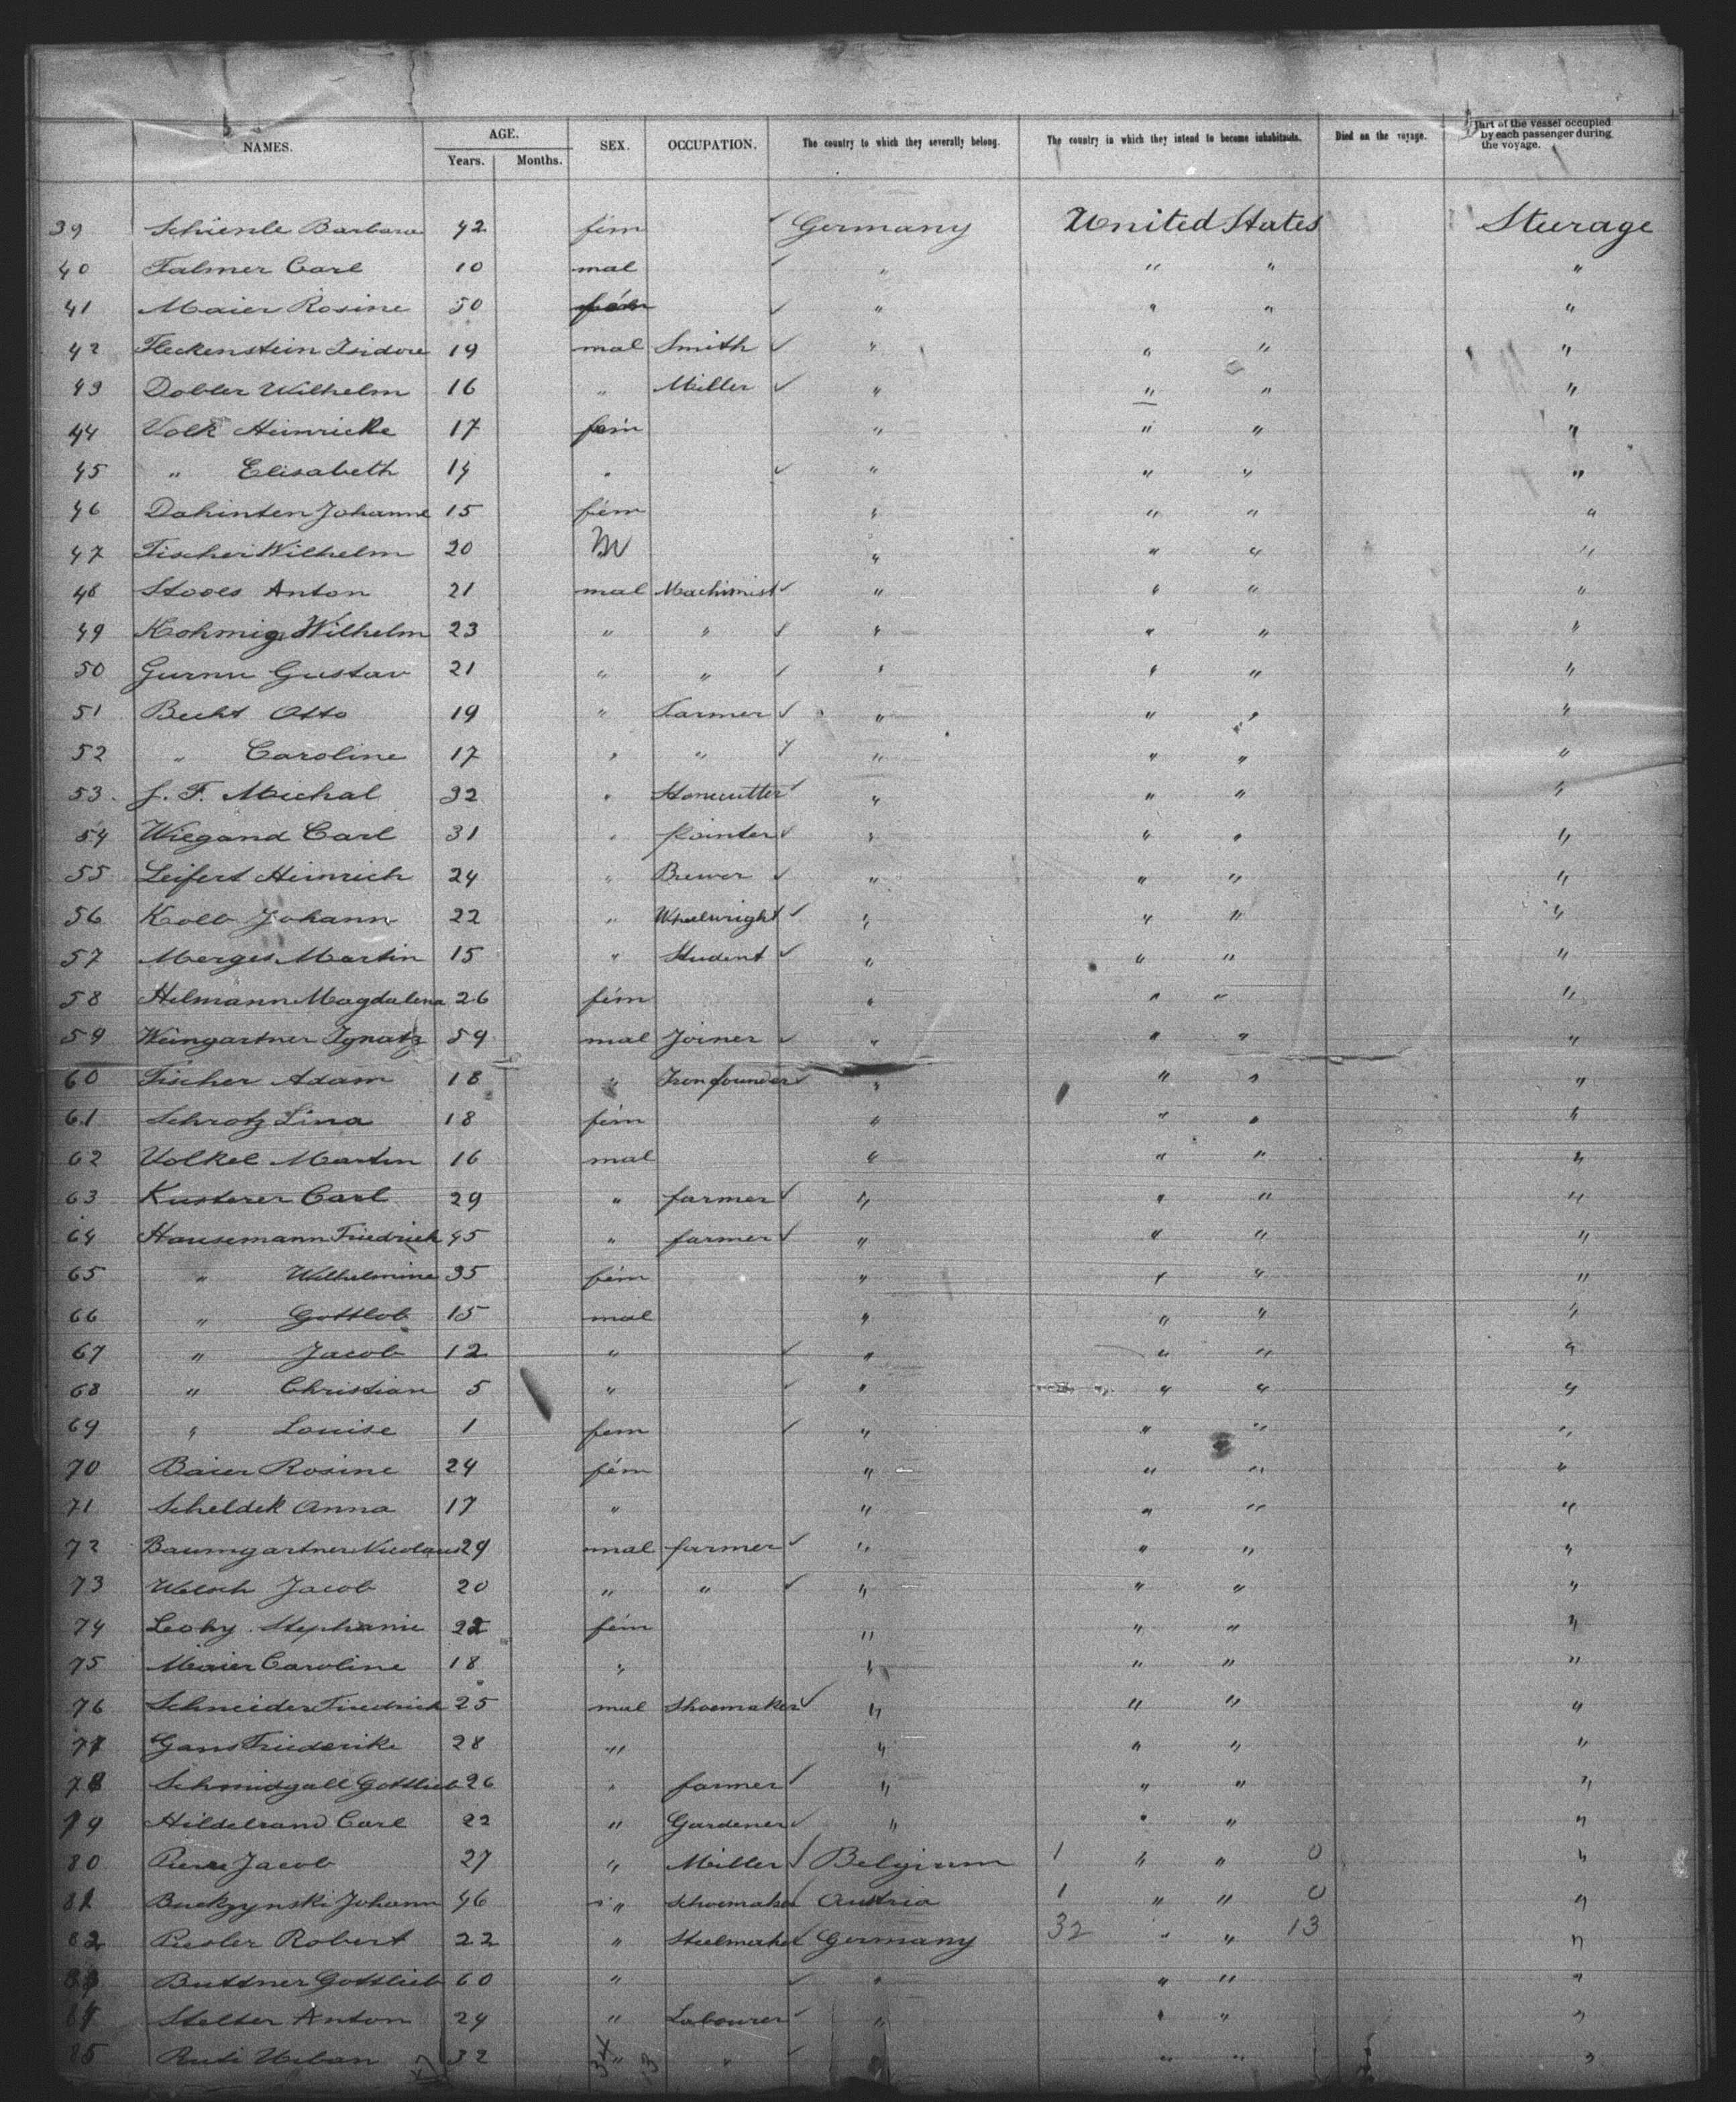 NAMES. AGE. Years. Months. SEX. OCCUPATION. The country to which they severally belong. The country in which they intend to become inhabitants. Died on the voyage. Part of the vessel occupied by each passenger during the voyage.
39 Schienle Barbara 42 fem Germany United States Steerage
40 Falmer Carl 10 mal " " " "
41 Maier Rosine 50 fem " " " "
42 Fleckenstein Isidore 19 mal Smith " " " "
43 Dobler Wilhelm 16 " Miller " " " "
44 Volk Heinricke 17 fem " " " "
45 " Elisabeth 14 " " " " "
46 Dahinten Johanne 15 fem " " " "
47 Fischer Wilhelm 20 M " " " "
48 Stooes Anton 21 mal Machinist " " " "
49 Hohmig Wilhelm 23 " " " " " "
50 Gustav 21 " " " " " "
51 Becht Otto 19 " Farmer " " " "
52 " Caroline 17 " " " " " "
53. J. F. Michal 32 " Stonecutter " " " "
54 Wiegand Carl 31 " Painter " " " "
55 Leifert Heinrich 24 " Brewer " " " "
56 Kolb Johann 22 " Wheelwright " " " "
57 Merges Martin 15 " Student " " " "
58 Helmann Magdalena 26 fem " " " "
59 Weingartner Ignatz 59 mal Joiner " " " "
60 Fischer Adam 18 " Ironfounder " " " "
61 Schrotz Lina 18 fem " " " "
62 Volkel Martin 16 mal " " " "
63 Kusterer Carl 29 " farmer " " " "
64 Hausemann Friedrich 45 " farmer " " " "
65 " Wilhelmine 35 fem " " " "
66 " Gottlob 15 mal " " " "
67 " Jacob 12 " " " " "
68 " Christian 5 " " " " "
69 " Louise 1 fem " " " "
70 Baier Rosine 24 fem " " " "
71 Scheldek Anna 17 " " " " "
72 Baumgartner Nicolaus 29 mal farmer " " " "
73 Welsch Jacob 20 " " " " " "
74 Leohy Stephanie 22 fem " " " "
75 Maier Caroline 18 " " " " "
76 Schneider Friedrich 25 mal Shoemaker " " " "
77 Gans Friederike 28 " " " " "
78 Schmidgall Gottlieb 26 " farmer " " " "
79 Hildebrand Carl 22 " Gardener " " " "
80 Jacob 27 " Miller Belgium 1 " " 0 "
81 Buckzynski Johann 46 " Shoemaker Austria 1 " " 0 "
82 Robert 22 " Germany 32 " " 13 "
83 Buttner Gottlieb 60 " " " " "
84 Stelter Anton 24 " Labourer " " " "
85 Urban 32 " " " " " "